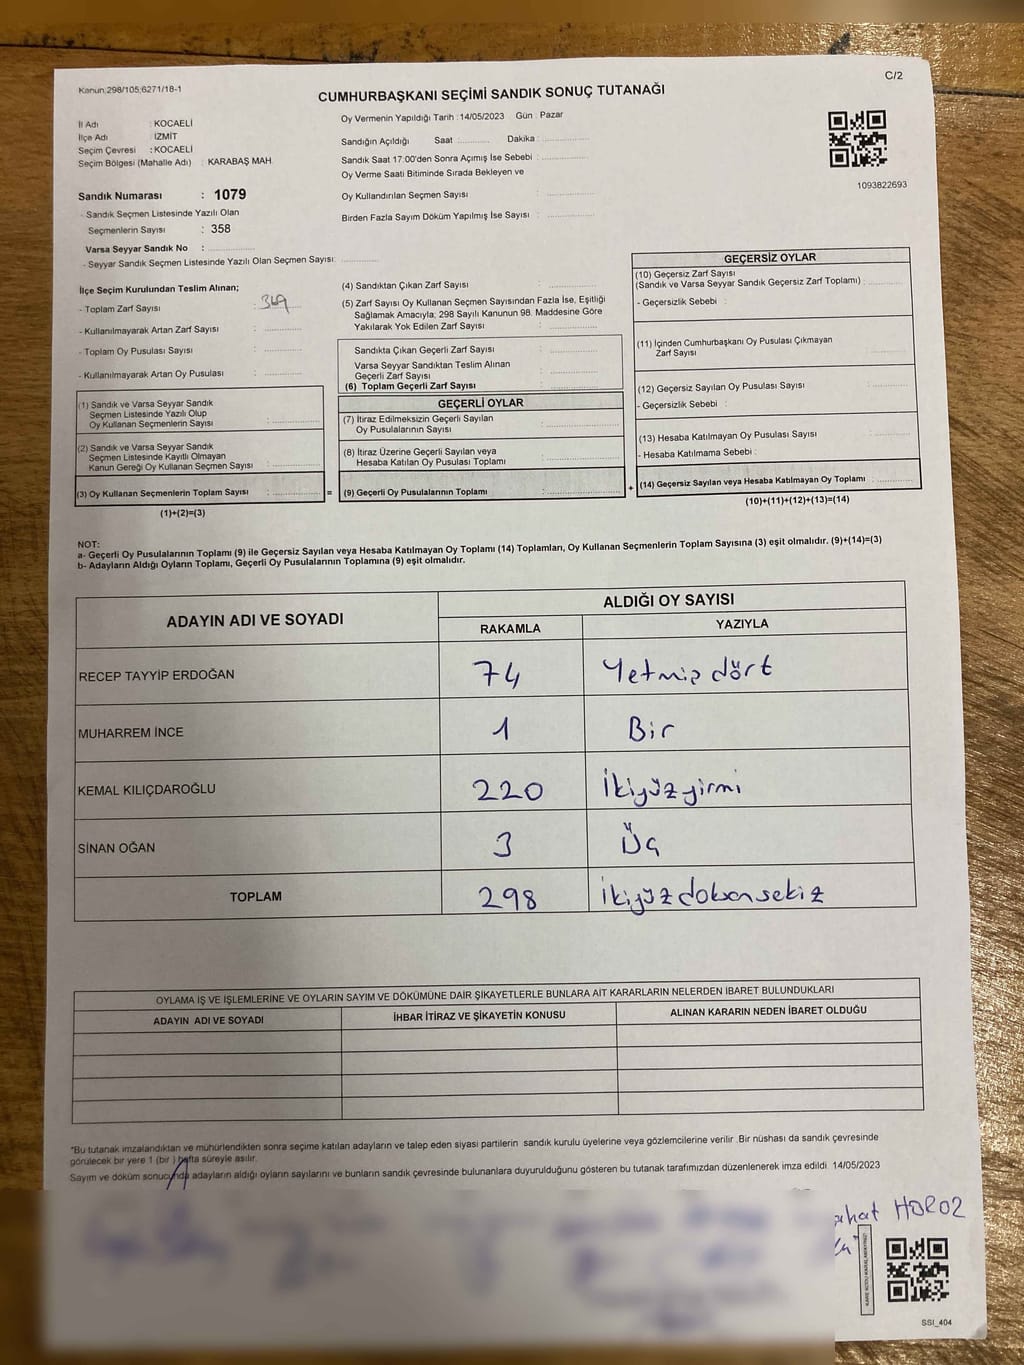 Kanun;298/105;6271/18-1
C/2
CUMHURBAŞKANI SEÇİMİ SANDIK SONUÇ TUTANAĞI
İl Adı : KOCAELİ
İlçe Adı : İZMİT
Seçim Çevresi : KOCAELİ
Seçim Bölgesi (Mahalle Adı) : KARABAŞ MAH
Sandık Numarası : 1079
- Sandık Seçmen Listesinde Yazılı Olan
Seçmenlerin Sayısı : 358
Varsa Seyyar Sandık No :
- Seyyar Sandık Seçmen Listesinde Yazılı Olan Seçmen Sayısı:
Oy Vermenin Yapıldığı Tarih : 14/05/2023 Gün : Pazar
Sandığın Açıldığı Saat : Dakika :
Sandık Saat 17:00'den Sonra Açımış İse Sebebi :
Oy Verme Saati Bitiminde Sırada Bekleyen ve
Oy Kullandırılan Seçmen Sayısı :
Birden Fazla Sayım Döküm Yapılmış İse Sayısı :
1093822693
İlçe Seçim Kurulundan Teslim Alınan;
- Toplam Zarf Sayısı : 369
- Kullanılmayarak Artan Zarf Sayısı :
- Toplam Oy Pusulası Sayısı :
- Kullanılmayarak Artan Oy Pusulası :
(1) Sandık ve Varsa Seyyar Sandık
Seçmen Listesinde Yazılı Olup
Oy Kullanan Seçmenlerin Sayısı :
(2) Sandık ve Varsa Seyyar Sandık
Seçmen Listesinde Kayıtlı Olmayan
Kanun Gereği Oy Kullanan Seçmen Sayısı :
(3) Oy Kullanan Seçmenlerin Toplam Sayısı : =
(1)+(2)=(3)
(4) Sandıktan Çıkan Zarf Sayısı :
(5) Zarf Sayısı Oy Kullanan Seçmen Sayısından Fazla İse, Eşitliği
Sağlamak Amacıyla; 298 Sayılı Kanunun 98. Maddesine Göre
Yakılarak Yok Edilen Zarf Sayısı :
Sandıkta Çıkan Geçerli Zarf Sayısı :
Varsa Seyyar Sandıktan Teslim Alınan
Geçerli Zarf Sayısı :
(6) Toplam Geçerli Zarf Sayısı :
GEÇERLİ OYLAR
(7) İtiraz Edilmeksizin Geçerli Sayılan
Oy Pusulalarının Sayısı :
(8) İtiraz Üzerine Geçerli Sayılan veya
Hesaba Katılan Oy Pusulası Toplamı :
(9) Geçerli Oy Pusulalarının Toplamı : +
GEÇERSİZ OYLAR
(10) Geçersiz Zarf Sayısı
(Sandık ve Varsa Seyyar Sandık Geçersiz Zarf Toplamı) :
- Geçersizlik Sebebi :
(11) İçinden Cumhurbaşkanı Oy Pusulası Çıkmayan
Zarf Sayısı
(12) Geçersiz Sayılan Oy Pusulası Sayısı :
- Geçersizlik Sebebi :
(13) Hesaba Katılmayan Oy Pusulası Sayısı :
- Hesaba Katılmama Sebebi :
(14) Geçersiz Sayılan veya Hesaba Katılmayan Oy Toplamı :
(10)+(11)+(12)+(13)=(14)
NOT:
a- Geçerli Oy Pusulalarının Toplamı (9) ile Geçersiz Sayılan veya Hesaba Katılmayan Oy Toplamı (14) Toplamları, Oy Kullanan Seçmenlerin Toplam Sayısına (3) eşit olmalıdır. (9)+(14)=(3)
b- Adayların Aldığı Oyların Toplamı, Geçerli Oy Pusulalarının Toplamına (9) eşit olmalıdır.
ADAYIN ADI VE SOYADI
ALDIĞI OY SAYISI
RAKAMLA YAZIYLA
RECEP TAYYİP ERDOĞAN 74 Yetmiş dört
MUHARREM İNCE 1 Bir
KEMAL KILIÇDAROĞLU 220 İkiyüz yirmi
SİNAN OĞAN 3 Üç
TOPLAM 298 İkiyüz doksan sekiz
OYLAMA İŞ VE İŞLEMLERİNE VE OYLARIN SAYIM VE DÖKÜMÜNE DAİR ŞİKAYETLERLE BUNLARA AİT KARARLARIN NELERDEN İBARET BULUNDUKLARI
ADAYIN ADI VE SOYADI İHBAR İTİRAZ VE ŞİKAYETİN KONUSU ALINAN KARARIN NEDEN İBARET OLDUĞU
*Bu tutanak imzalandıktan ve mühürlendikten sonra seçime katılan adayların ve talep eden siyasi partilerin sandık kurulu üyelerine veya gözlemcilerine verilir .Bir nüshası da sandık çevresinde
görülecek bir yere 1 (bir ) hafta süreyle asılır.
Sayım ve döküm sonucunda adayların aldığı oyların sayılarını ve bunların sandık çevresinde bulunanlara duyurulduğunu gösteren bu tutanak tarafımızdan düzenlenerek imza edildi. 14/05/2023
HOROZ
SSI_404